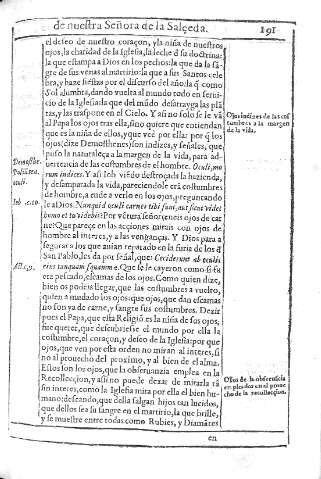 de nuestra Señora de la Salçeda. 191
el deseo de nuestro coraçon, y la niña de nuestros
ojos, la charidad de la Iglesia, la leche d su doctrina:
la que estampa a Dios en los pechos: la que da la sã-
gre de sus venas al martirio: la que a sus Santos cele-
bra, y haze fiestas por el discurso del año: la q̃ como
Sol alumbra, dando vuelta al mundo todo en serui-
cio de la Iglesia: la que del mũdo desarrayga las plã-
tas, y las traspone en el Cielo. Y asi no solo se le vã
al Papa los ojos tras ella, sino quiere que entiendan
que es la niña de ellos, y que vee por ella: por q̃ los
ojos, dize Demosthenes, son indices, y señales, que
puso la naturaleça a la margen de la vida, para ad-
uertencia de las costumbres de el hombre. Oculi, mo
rum indices. Y asi Iob viẽdo destroçada la huzienda,
y desamparada la vida, pareciendole erã costumbres
de hombre, acude a verlo en los ojos, preguntando
le a Dios: Nunquid oculi carnei tibi sunt, aut sicut videt
homo et tu videbis? Por vẽtura señor teneis ojos de car
ne? Que parece en las acciones mirais con ojos de
hombre al interes, y a las venganças. Y Dios para a
segorar los que auian reparado en la furia de los d̃
San Pablo, les da por señal, que: Ceciderunt ab oculis
eius tanquam squamæ. Que se le cayeron como si fue
ra pescado, escamas de los ojos. Como quien dize,
bien os podeis llegar, que las costumbres a vuelto,
quien a mudado los ojos: que ojos, que dan escamas
no son ya de carne, y sangre sus costumbres. Dezir
pues el Papa, que esta Religiõ es la niña de sus ojos;
fue querer, que descubriese el mundo por ella la
costumbre, el coraçon, y deseo de la Iglesia: por que
ojos, que ven por esta orden no miran al interes, si
no al prouecho del proximo, y al bien de el alma.
Estos son los ojos, que la obseruancia emplea en la
Recolleccion, y asi no puede dexar de mirarla tã
sin interes, como la Iglesia mira por ella el bien hu-
mano: deseando, que della salgan hijos tan lucidos,
que dellos sea su sangre en el martirio, la que brille,
y se muestre entre todas como Rubies, y Diamãtes
en
Ojos indices de las cos
tumbres a la margen
de la vida.
oculi.
Iob c. 10.
Act. c. 9.
Ojos de la obseruancia
empleados en el proue
cho de la recolleccion.